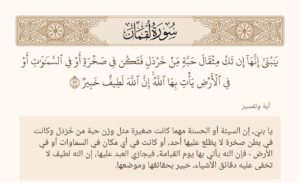 سورة لقمان
يَٰبُنَيَّ إِنَّهَآ إِن تَكُ مِثۡقَالَ حَبَّةٖ مِّنۡ خَرۡدَلٖ فَتَكُن فِي صَخۡرَةٍ أَوۡ فِي ٱلسَّمَٰوَٰتِ أَوۡ
فِي ٱلۡأَرۡضِ يَأۡتِ بِهَا ٱللَّهُۚ إِنَّ ٱللَّهَ لَطِيفٌ خَبِيرٞ ١٦
آية وتفسير
يا بني، إن السيئة أو الحسنة مهما كانت صغيرة مثل وزن حبة من خردل وكانت
في بطن صخرة لا يطلع عليها أحد، أو كانت في أي مكان في السماوات أو في
الأرض - فإن الله يأتي بها يوم القيامة، فيجازي العبد عليها، إن الله لطيف لا
تخفى عليه دقائق الأشياء، خبير بحقائقها وموضعها.